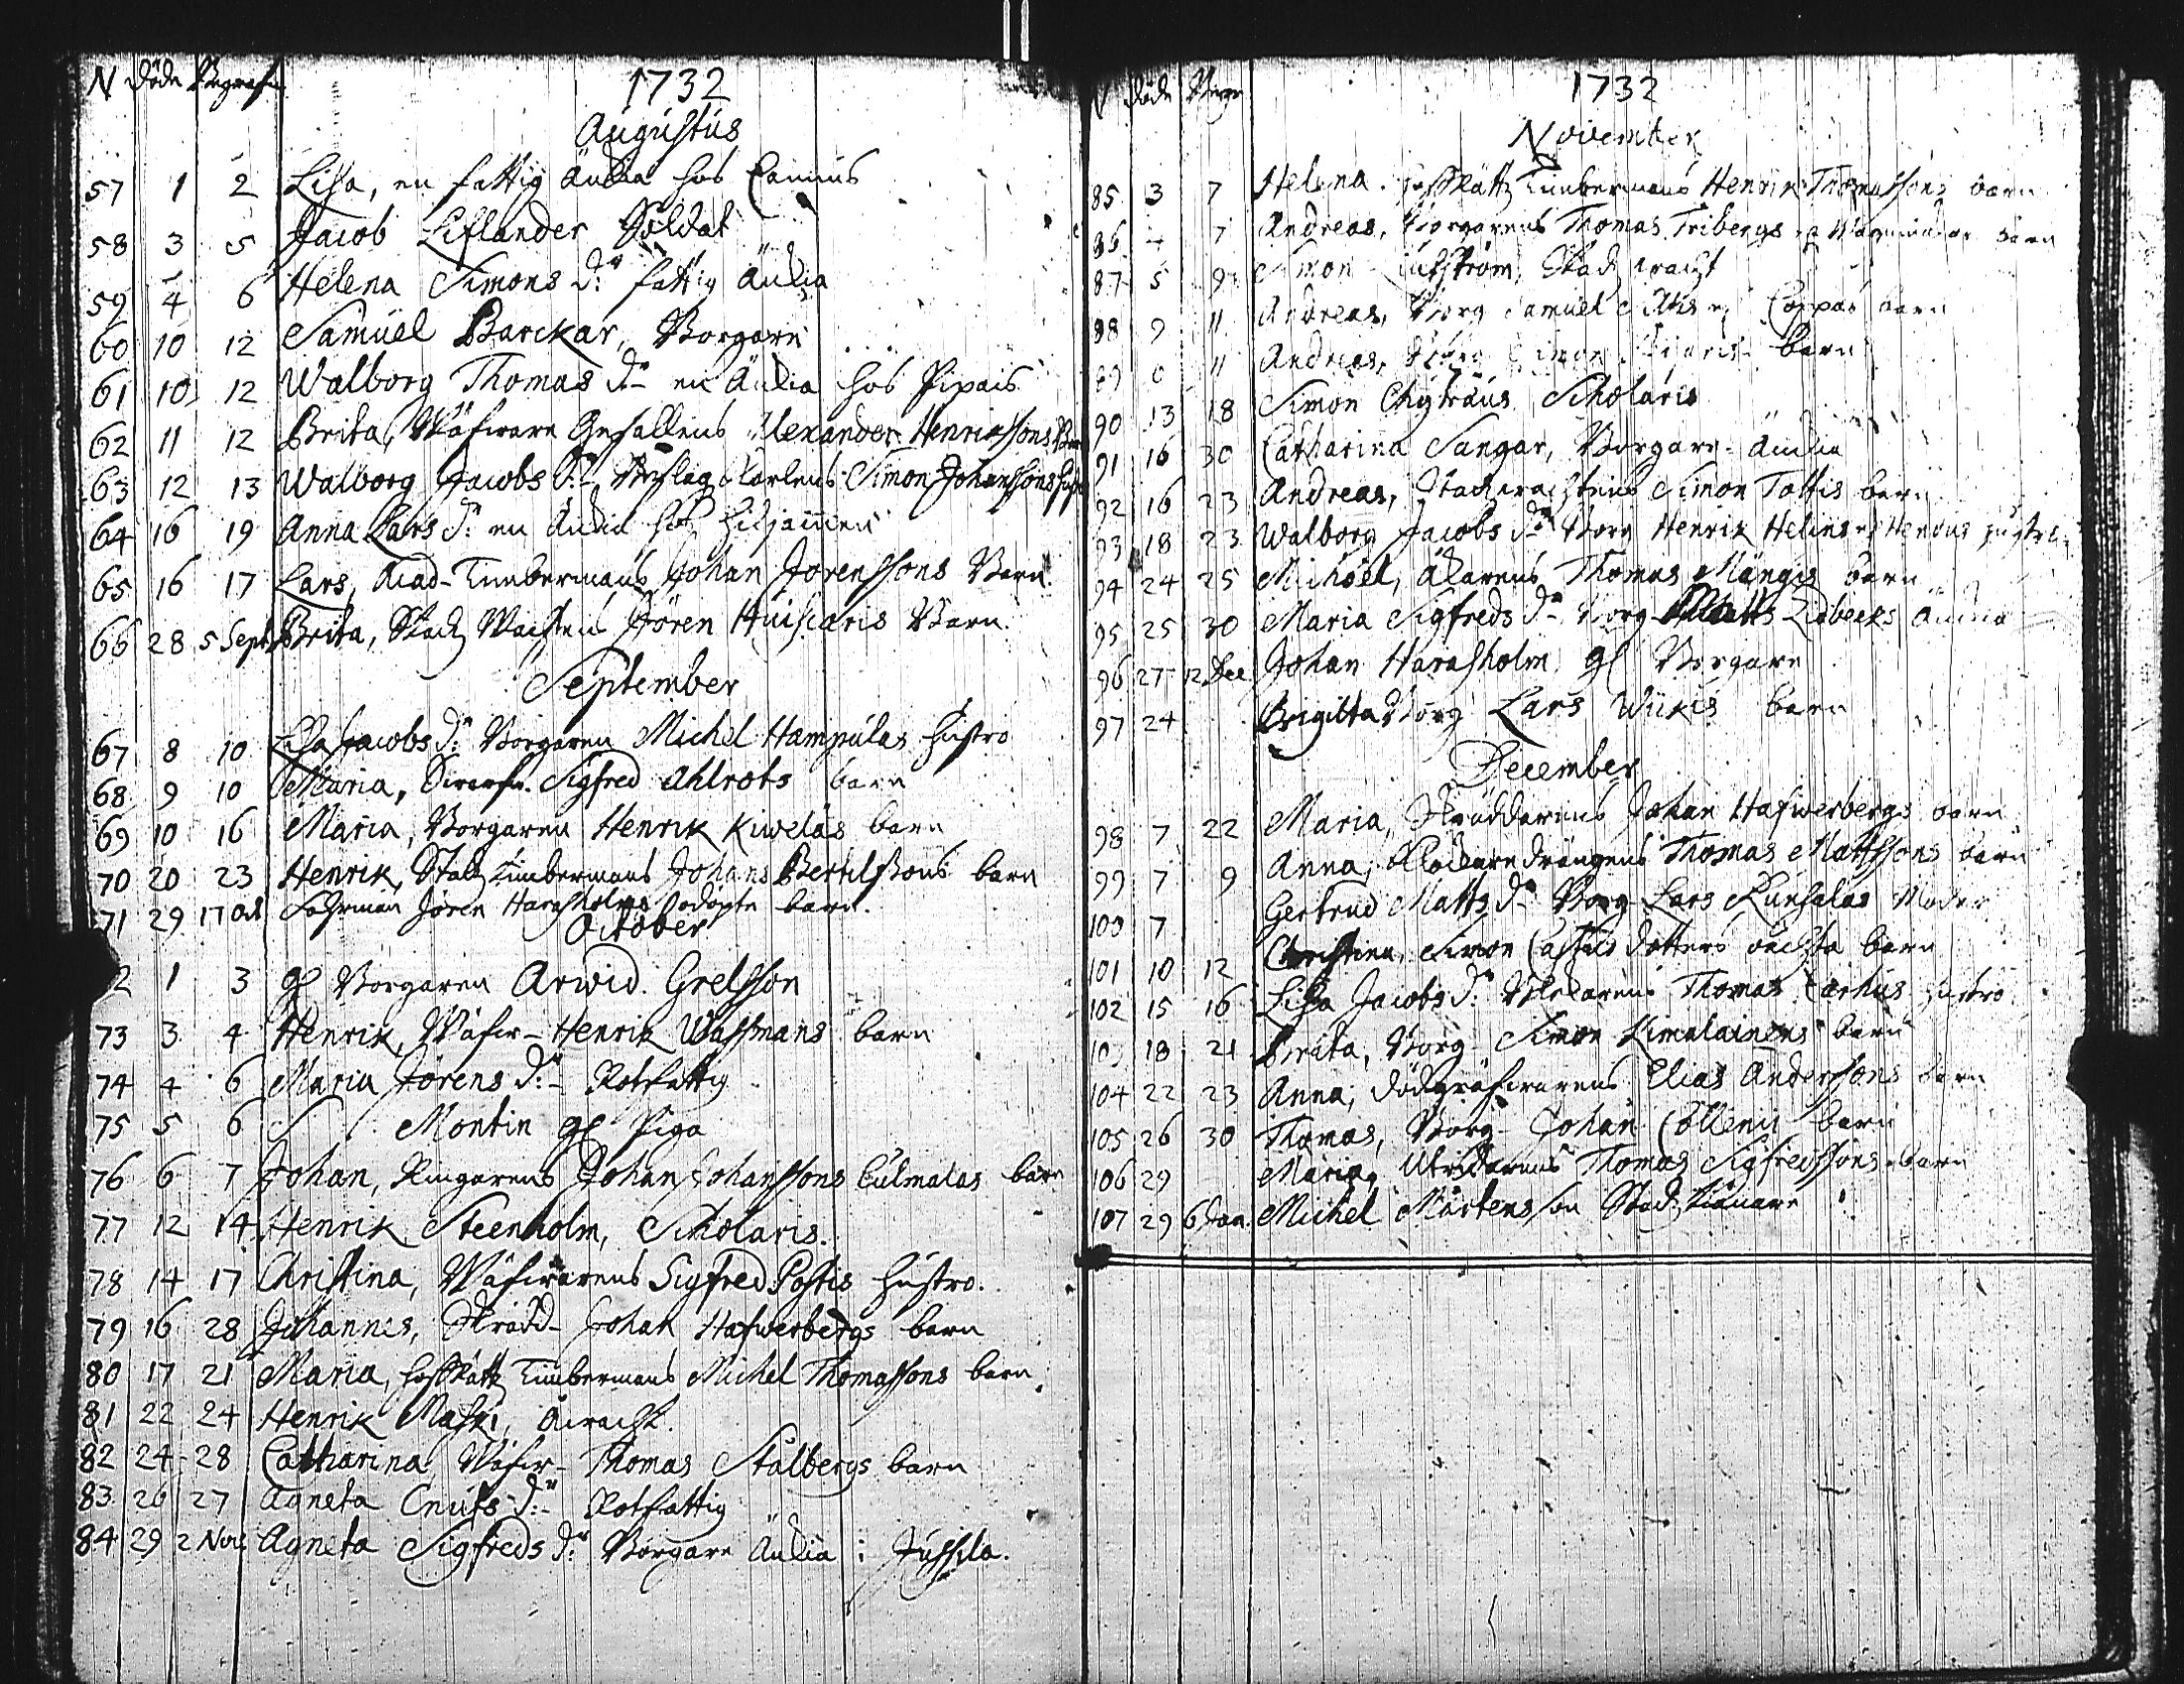 N döde Begrafn
1732
Augustus
57 1 2 Lisa, en fattig Änkia hos Canius
58 3 5 Jacob Liflander Soldat
59 4 6 Helena Simons dr fattig Änkia
60 10 12 Samuel Barckar, Borgare
61 10 12 Walborg Thomas dr en Änkia hos Pipais
62 11 12 Brita, Wäfware Gesällens Alexander Henrikssons Barn
63 12 13 Walborg Jacobs dr, Karlens Simon Johanssons
64 16 19 Anna Lars dr en Änkia hos
65 16 17 Lars, Acad Timbermans Johan Jörenssons Barn
66 28 5 Sept Brita, Stadz Wachtens Jören Huiscaris Barn
September
67 8 10 Lisa Jacobs dr Borgaren Michel Hampulas hustro
68 9 10 Maria, Sigfred Ahlrots barn
69 10 16 Maria, Borgaren Henrik Kiweläs barn
70 20 23 Henrik, Stadz Timbermans Johans Bertilssons barn
71 29 17 Oct Jören Harasholms odöpte barn.
October
2 1 3 gl Borgaren Arwid Grelsson
73 3 4 Henrik, Wäfw- Henrik Wassmans barn
74 4 6 Maria Jörens dr Rotfattig
75 5 6 Montin gl Piga
76 6 7 Johan, Ringarens Johan Johanssons Culmalas barn
77 12 14 Henrik Steenholm, Scholaris.
78 14 17 Christina, Wäfwarens Sigfred Postis hustro.
79 16 28 Johannes, Skrädd- Johan Hafwerbergs barn
80 17 21 Maria, hofRätt Timbermans Michel Thomassons barn
81 22 24 Henrik Maski,
82 24 28 Catharina, Wäfw- Thomas Stålbergs barn
83 26 27 Agneta Cnuts dr Rotfattig
84 29 2 Nov Agneta Sigfreds dr Borgare Änkia i Jussila.
N döde Begr
1732
November
85 3 7 Helena, hofRätt Timbermans Henrik Thomassons barn
86 4 7 Andreas, Borgarens Thomas Fribergs barn
87 5 9 Simon Stadz wacht
88 9 11 Andreas, Borg Samuel Coppas barn
89 11 Andreas, Borg Simon barn
90 13 18 Simon Chytræus Scholaris
91 16 30 Catharina Sangar, Borgare Änkia
92 16 23 Andreas, Stadzwachtens Simon Tattis barn
93 18 23 Walborg Jacobs dr Borg Henrik Helins hustro
94 24 25 Michael, Åkarens Thomas Mängis barn
95 25 30 Maria Sigfreds dr Borg Matts Lidbecks Änkia
96 27 12 Dec. Johan Harasholm gl Borgare
97 24 Brigitta Borg Lars Wiikis barn
December
98 7 22 Maria, Skräddarens Johan Hafwerbergs barn
99 7 9 Anna, Klockaredrängens Thomas Mattssons barn
100 7 Gertrud Matts dr Borg Lars Kunsalas Moder
101 10 12 Christina, Simon dotters oächta barn
102 15 16 Lisa Jacobs dr Thomas hustro
18 21 Brita, Borg Simon Kimalainens barn
104 22 23 Anna, dödgräfwarens Elias Anderssons barn
105 26 30 Thomas, Borg Johan Collenii barn
106 29 Maria, Thomas Sigfredssons barn
107 29 6 Jan. Michel Mårtensson Stadz tienare